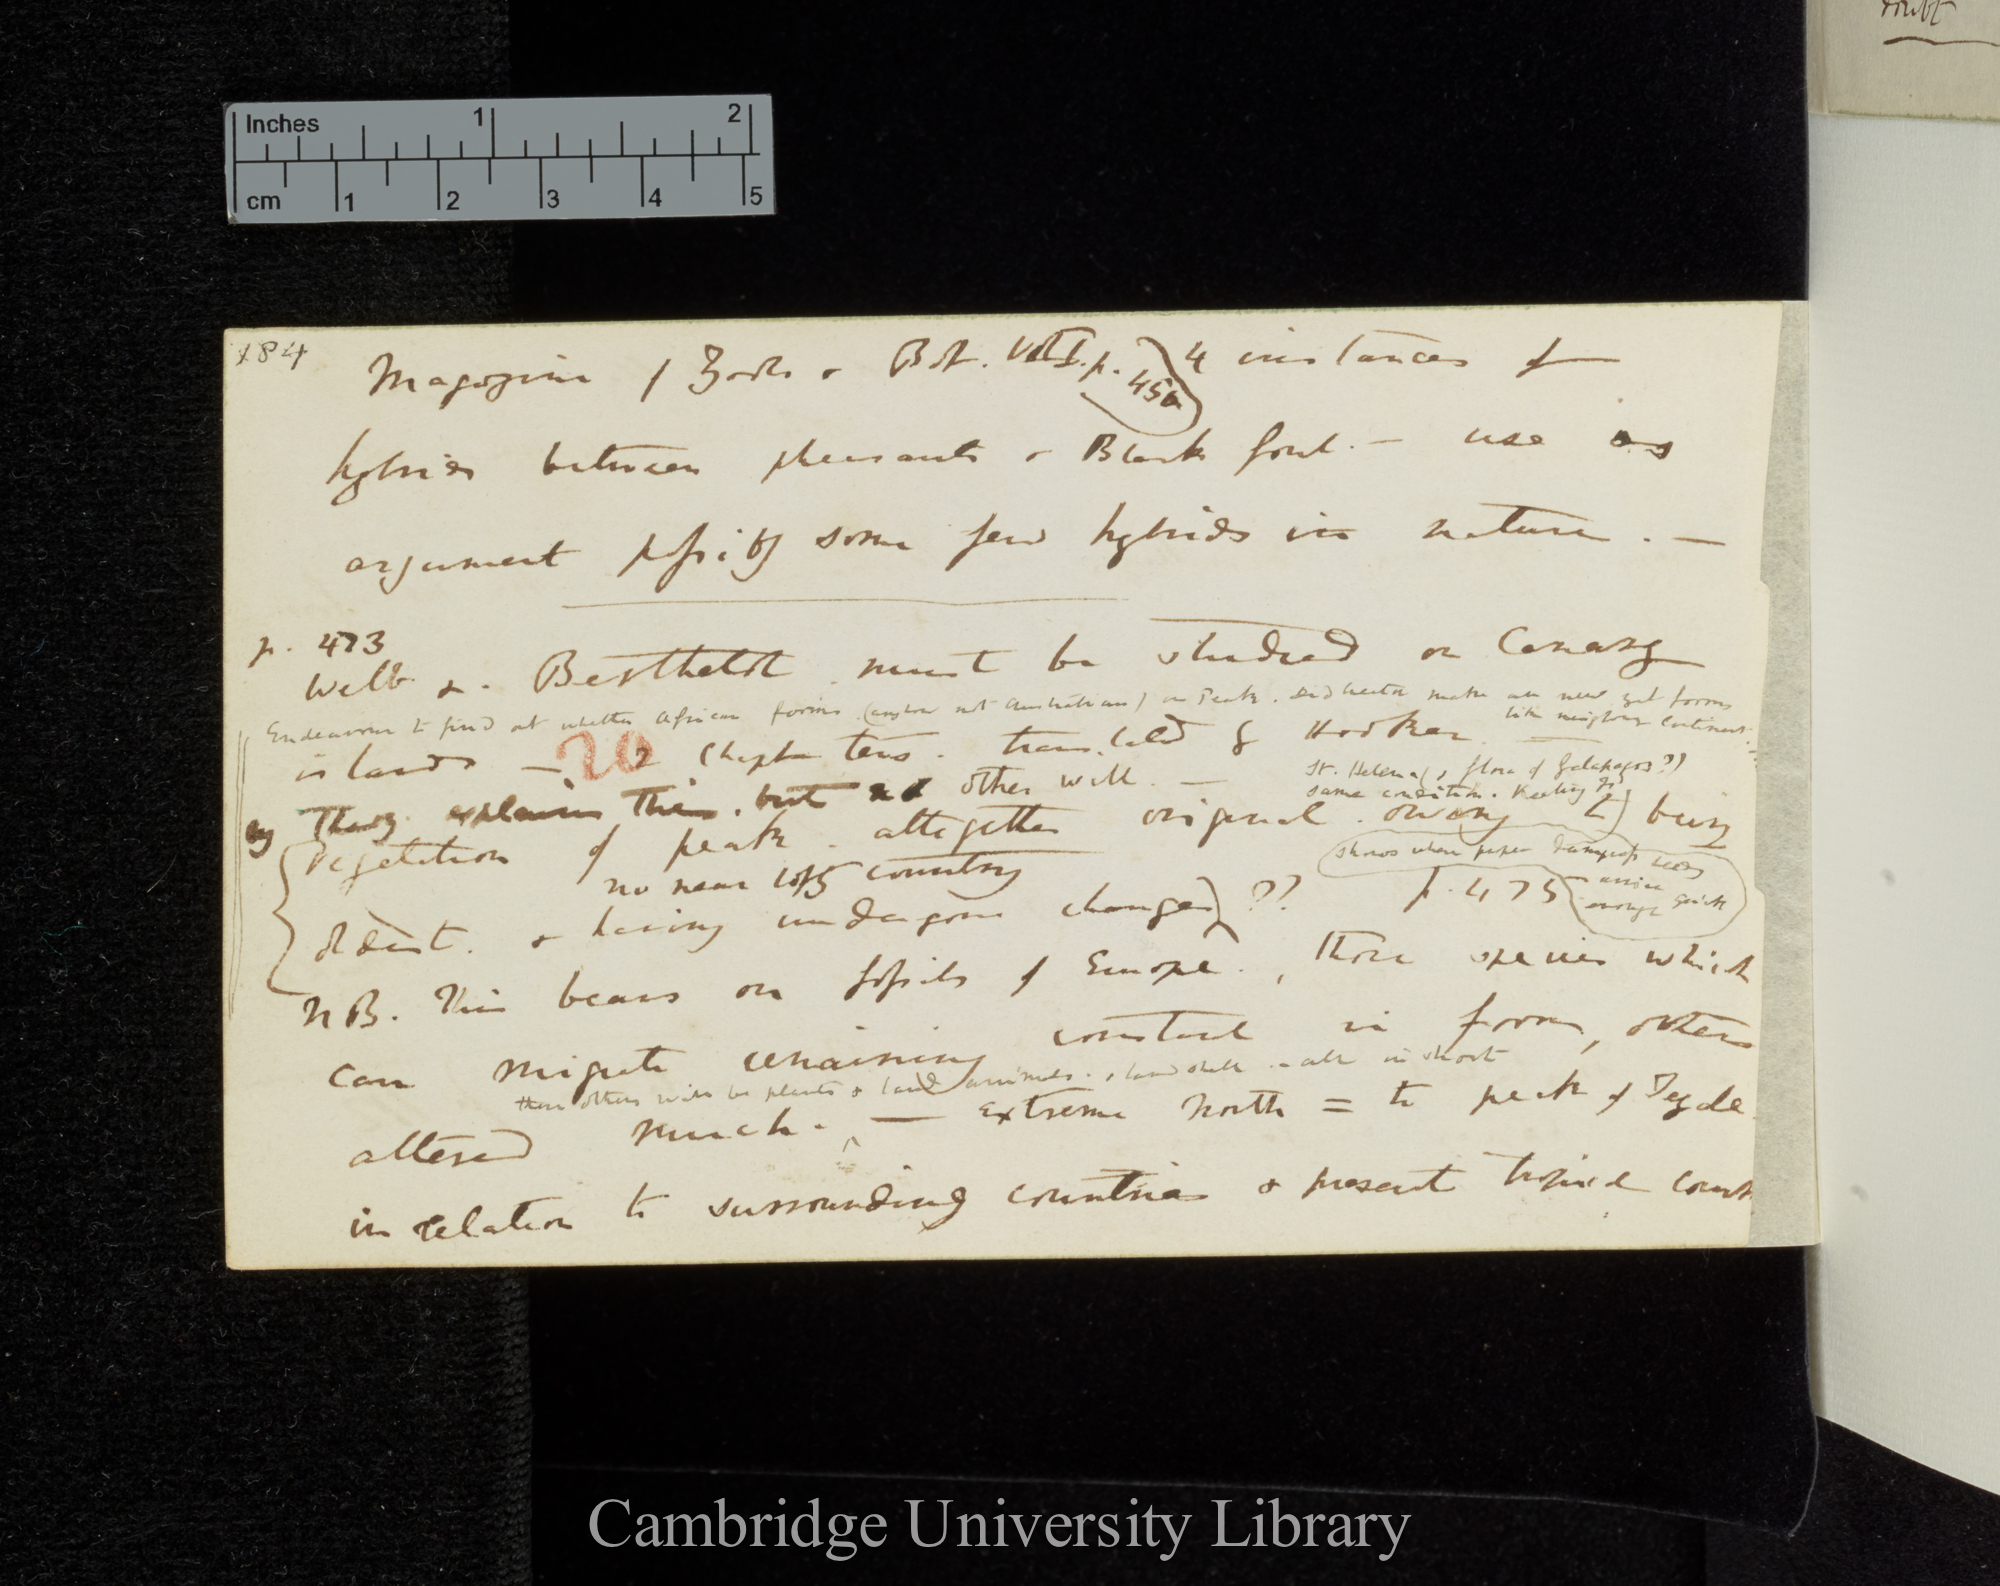 doubt
Inches 1 2
cm 1 2 3 4 5
184
Magazine of Zool. & Bot. Vol I. p. 450 4 instances of
hybrids between pheasants & Black fowl. — use as
argument possibly some few hybrids in nature. —
p. 473
Webb &. Berthelot must be studied on Canary
Endeavour to find out whether African forms. (anyhow not Australian) on Peak. Did Creator make all new yet forms
like neighbour Continent.
islands — 20 2 Chapters. translated by Hooker
St. Helena (& flora of Galapagos??)
same condition. Keeling Id
my Theory explains this. but no other will. —
Vegetation of peak. altogether original. owing (2) being
shows where proper dampness seeds
arrive quick
enough
no near lofty country
distant. & having undergone changes) ?? p. 475
NB. This bears on fossils of Europe., those species which
can migrate remaining constant in form, others
these others will be plants & land animals. & land shells - all in short
altered much. — extreme North = to peak of Teyde
in relation to surrounding countries & present tropical count
Cambridge University Library